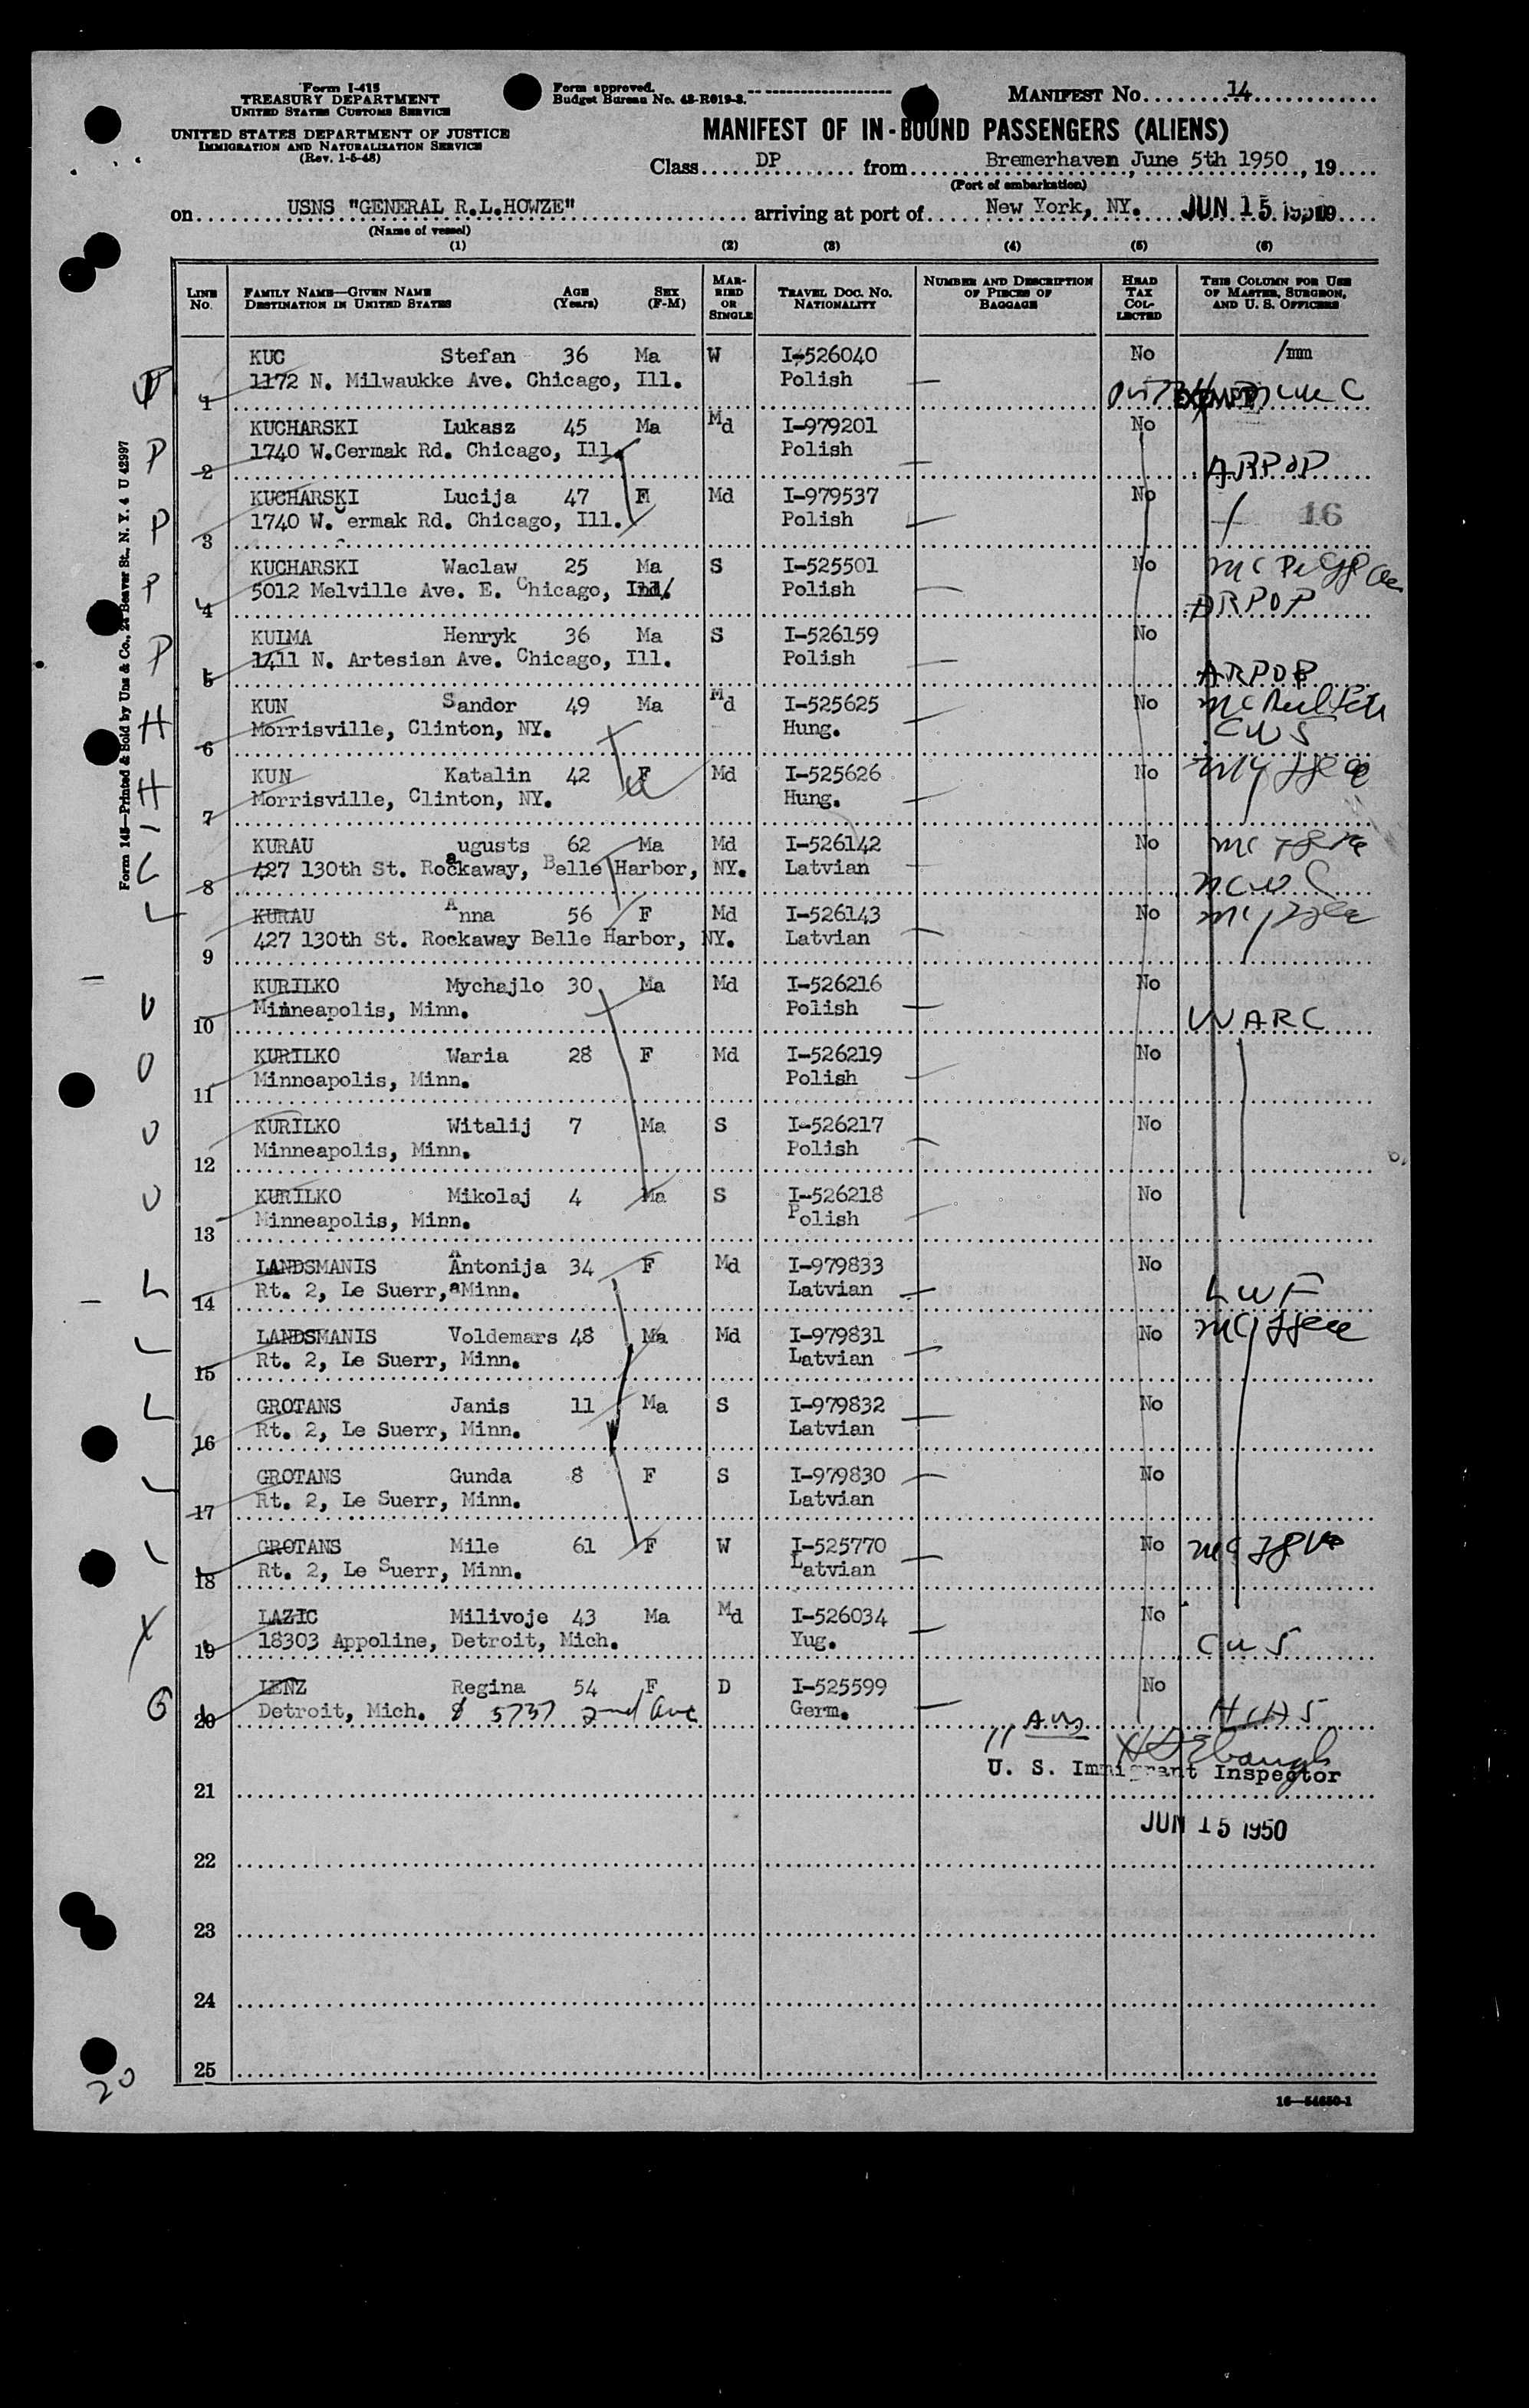 Form I-415
TREASURY DEPARTMENT
UNITED STATES CUSTOMS SERVICE
UNITED STATES DEPARTMENT OF JUSTICE
IMMIGRATION AND NATURALIZATION SERVICE
(Rev. 1-5-48)
Form approved.
Budget Bureau No. 43-R019-3.
MANIFEST No. 14
MANIFEST OF IN-BOUND PASSENGERS (ALIENS)
Class DP from Bremerhaven, June 5th 1950, 19
(Port of embarkation)
on USNS "GENERAL R.L.HOWZE" arriving at port of New York, NY. JUN 15 1950 19
(Name of vessel)
(1) (2) (3) (4) (5) (6)
LINE No. FAMILY NAME—GIVEN NAME DESTINATION IN UNITED STATES AGE (Years) SEX (F-M) MARRIED OR SINGLE TRAVEL DOC. NO. NATIONALITY NUMBER AND DESCRIPTION OF PIECES OF BAGGAGE HEAD TAX COLLECTED THIS COLUMN FOR USE OF MASTER, SURGEON, AND U. S. OFFICERS
KUC Stefan 36 Ma W I-526040 No /mm
P 1 1172 N. Milwaukke Ave. Chicago, Ill. Polish EXEMPT
KUCHARSKI Lukasz 45 Ma Md I-979201 No
P 2 1740 W.Cermak Rd. Chicago, Ill. Polish ARPOP
KUCHARSKI Lucija 47 F Md I-979537 No
P 3 1740 W. Cermak Rd. Chicago, Ill. Polish 16
KUCHARSKI Waclaw 25 Ma S I-525501 No
P 4 5012 Melville Ave. E. Chicago, Ind. Polish ARPOP
KULMA Henryk 36 Ma S I-526159 No
P 5 1411 N. Artesian Ave. Chicago, Ill. Polish ARPOP
KUN Sandor 49 Ma Md I-525625 No
H 6 Morrisville, Clinton, NY. Hung. CWS
KUN Katalin 42 F Md I-525626 No
H 7 Morrisville, Clinton, NY. Hung.
KURAU augusts 62 Ma Md I-526142 No
L 8 427 130th St. Rockaway, Belle Harbor, NY. Latvian NCWC
KURAU Anna 56 F Md I-526143 No
L 9 427 130th St. Rockaway Belle Harbor, NY. Latvian
KURILKO Mychajlo 30 Ma Md I-526216 No
U 10 Minneapolis, Minn. Polish UUARC
KURILKO Waria 28 F Md I-526219 No
U 11 Minneapolis, Minn. Polish
KURILKO Witalij 7 Ma S I-526217 No
U 12 Minneapolis, Minn. Polish
KURILKO Mikolaj 4 Ma S I-526218 No
U 13 Minneapolis, Minn. Polish
LANDSMANIS Antonija 34 F Md I-979833 No
L 14 Rt. 2, Le Suerr, Minn. Latvian LWF
LANDSMANIS Voldemars 48 Ma Md I-979831 No
L 15 Rt. 2, Le Suerr, Minn. Latvian
GROTANS Janis 11 Ma S I-979832 No
L 16 Rt. 2, Le Suerr, Minn. Latvian
GROTANS Gunda 8 F S I-979830 No
L 17 Rt. 2, Le Suerr, Minn. Latvian
GROTANS Mile 61 F W I-525770 No
L 18 Rt. 2, Le Suerr, Minn. Latvian
LAZIC Milivoje 43 Ma Md I-526034 No
19 18303 Appoline, Detroit, Mich. Yug. CWS
LENZ Regina 54 F D I-525599 No
G 20 Detroit, Mich. 5737 2nd Ave Germ.
U. S. Immigrant Inspector
21
JUN 15 1950
22
23
24
25
20
16—54650-1
Form 145—Printed & Sold by Uns & Co., 24 Beaver St., N. Y. 4 U 42997